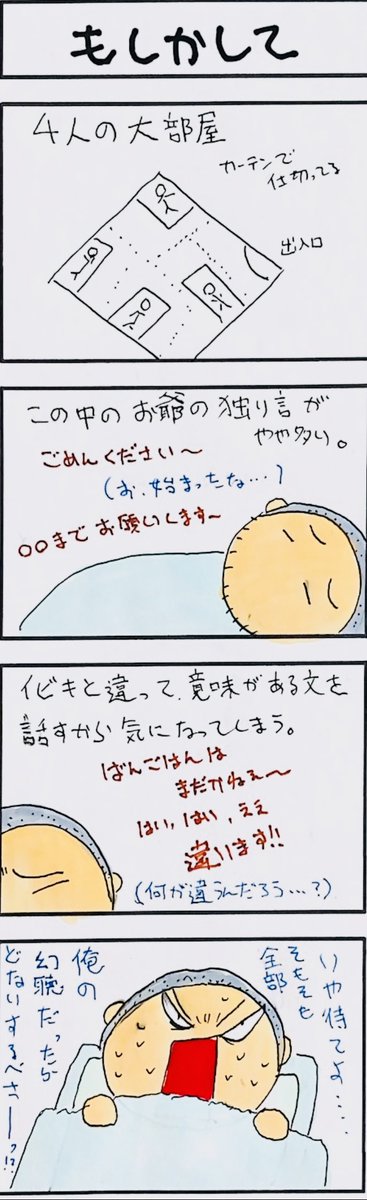 もしかして
4人の大部屋
カーテンで
仕切ってる
出入口
この中のお爺の独り言が
やや多い。
ごめんください〜
(お、始まったな…)
〇〇までお願いします〜
イビキと違って、意味がある文を
話すから気になってしまう。
ばんごはんは
まだかねぇ〜
はい、はい、ええ
違います!!
(何が違うんだろう…?)
いや待てよ‥‥
そもそも
全部
俺の
幻聴だったら
どないするべさーっ!?